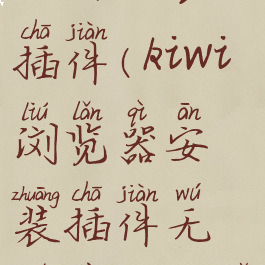 chā jiàn
插件(kiwi
liú lǎn qì ān
浏览器安
zhuāng chā jiàn wú
装插件无